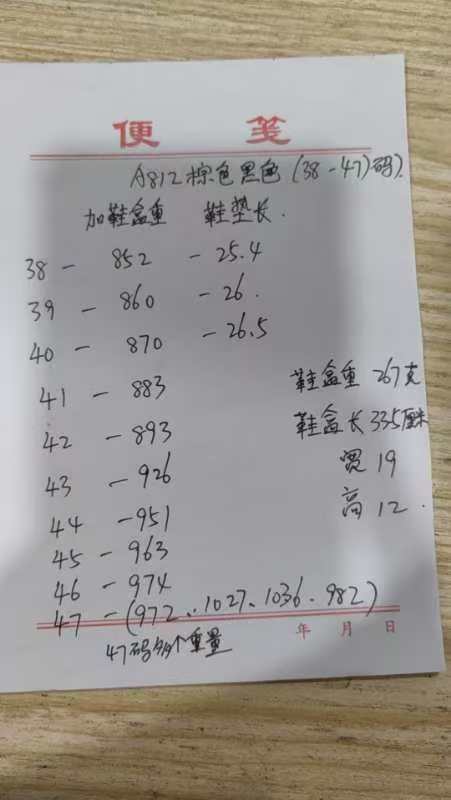 便 笺
A812棕色黑色(38-47)码)
加鞋盒重 鞋垫长.
38 - 852 - 25.4
39 - 860 - 26.
40 - 870 - 26.5
41 - 883
鞋盒重 267克
42 - 893
鞋盒长 33.5厘米
43 - 926
宽 19
44 - 951
高 12.
45 - 963
46 - 974
47 - (972、1027、1036、982)
年 月 日
47码多个重量